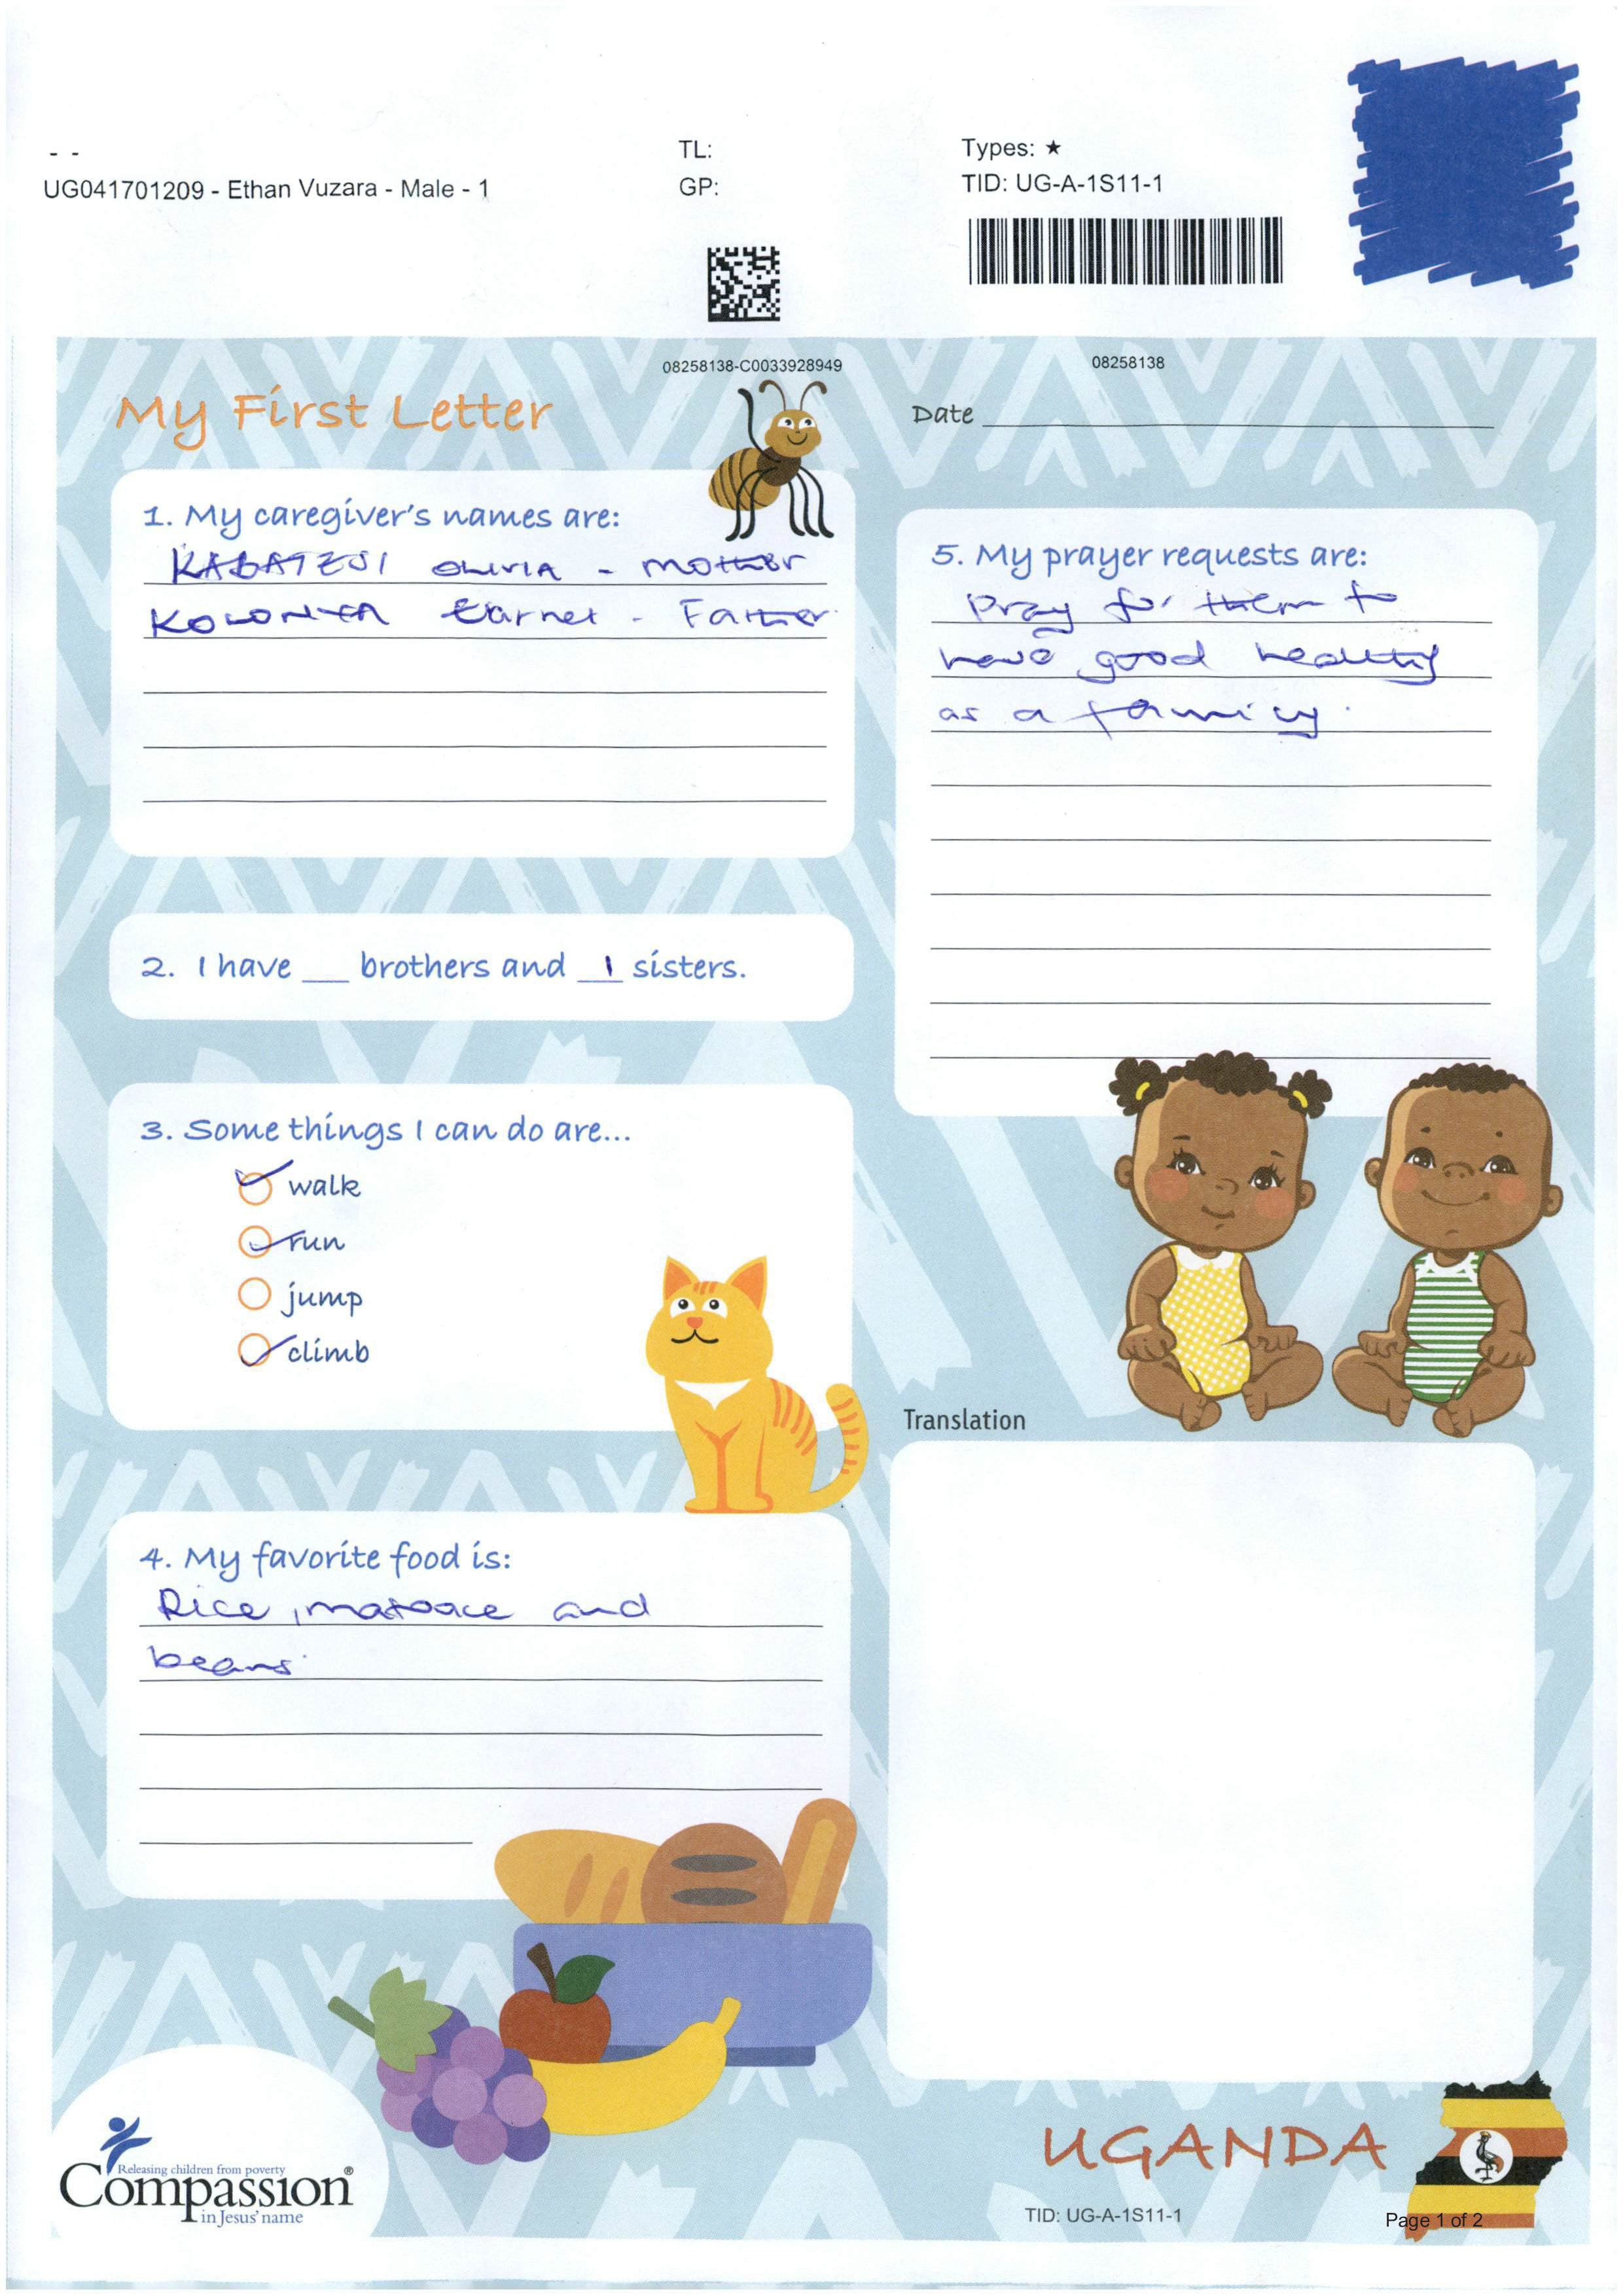 - -
UG041701209 - Ethan Vuzara - Male - 1
TL:
GP:
Types: ★
TID: UG-A-1S11-1
08258138-C0033928949
08258138
My First Letter
Date
1. My caregiver's names are:
KABATESI OLIVIA - mother
Garnet - Father
2. I have __ brothers and 1 sisters.
3. Some things I can do are...
walk
run
jump
climb
4. My favorite food is:
Rice, matooce and
beans
5. My prayer requests are:
Pray for them to
have good healthy
as a family.
Translation
Releasing children from poverty
Compassion®
in Jesus' name
UGANDA
TID: UG-A-1S11-1
Page 1 of 2